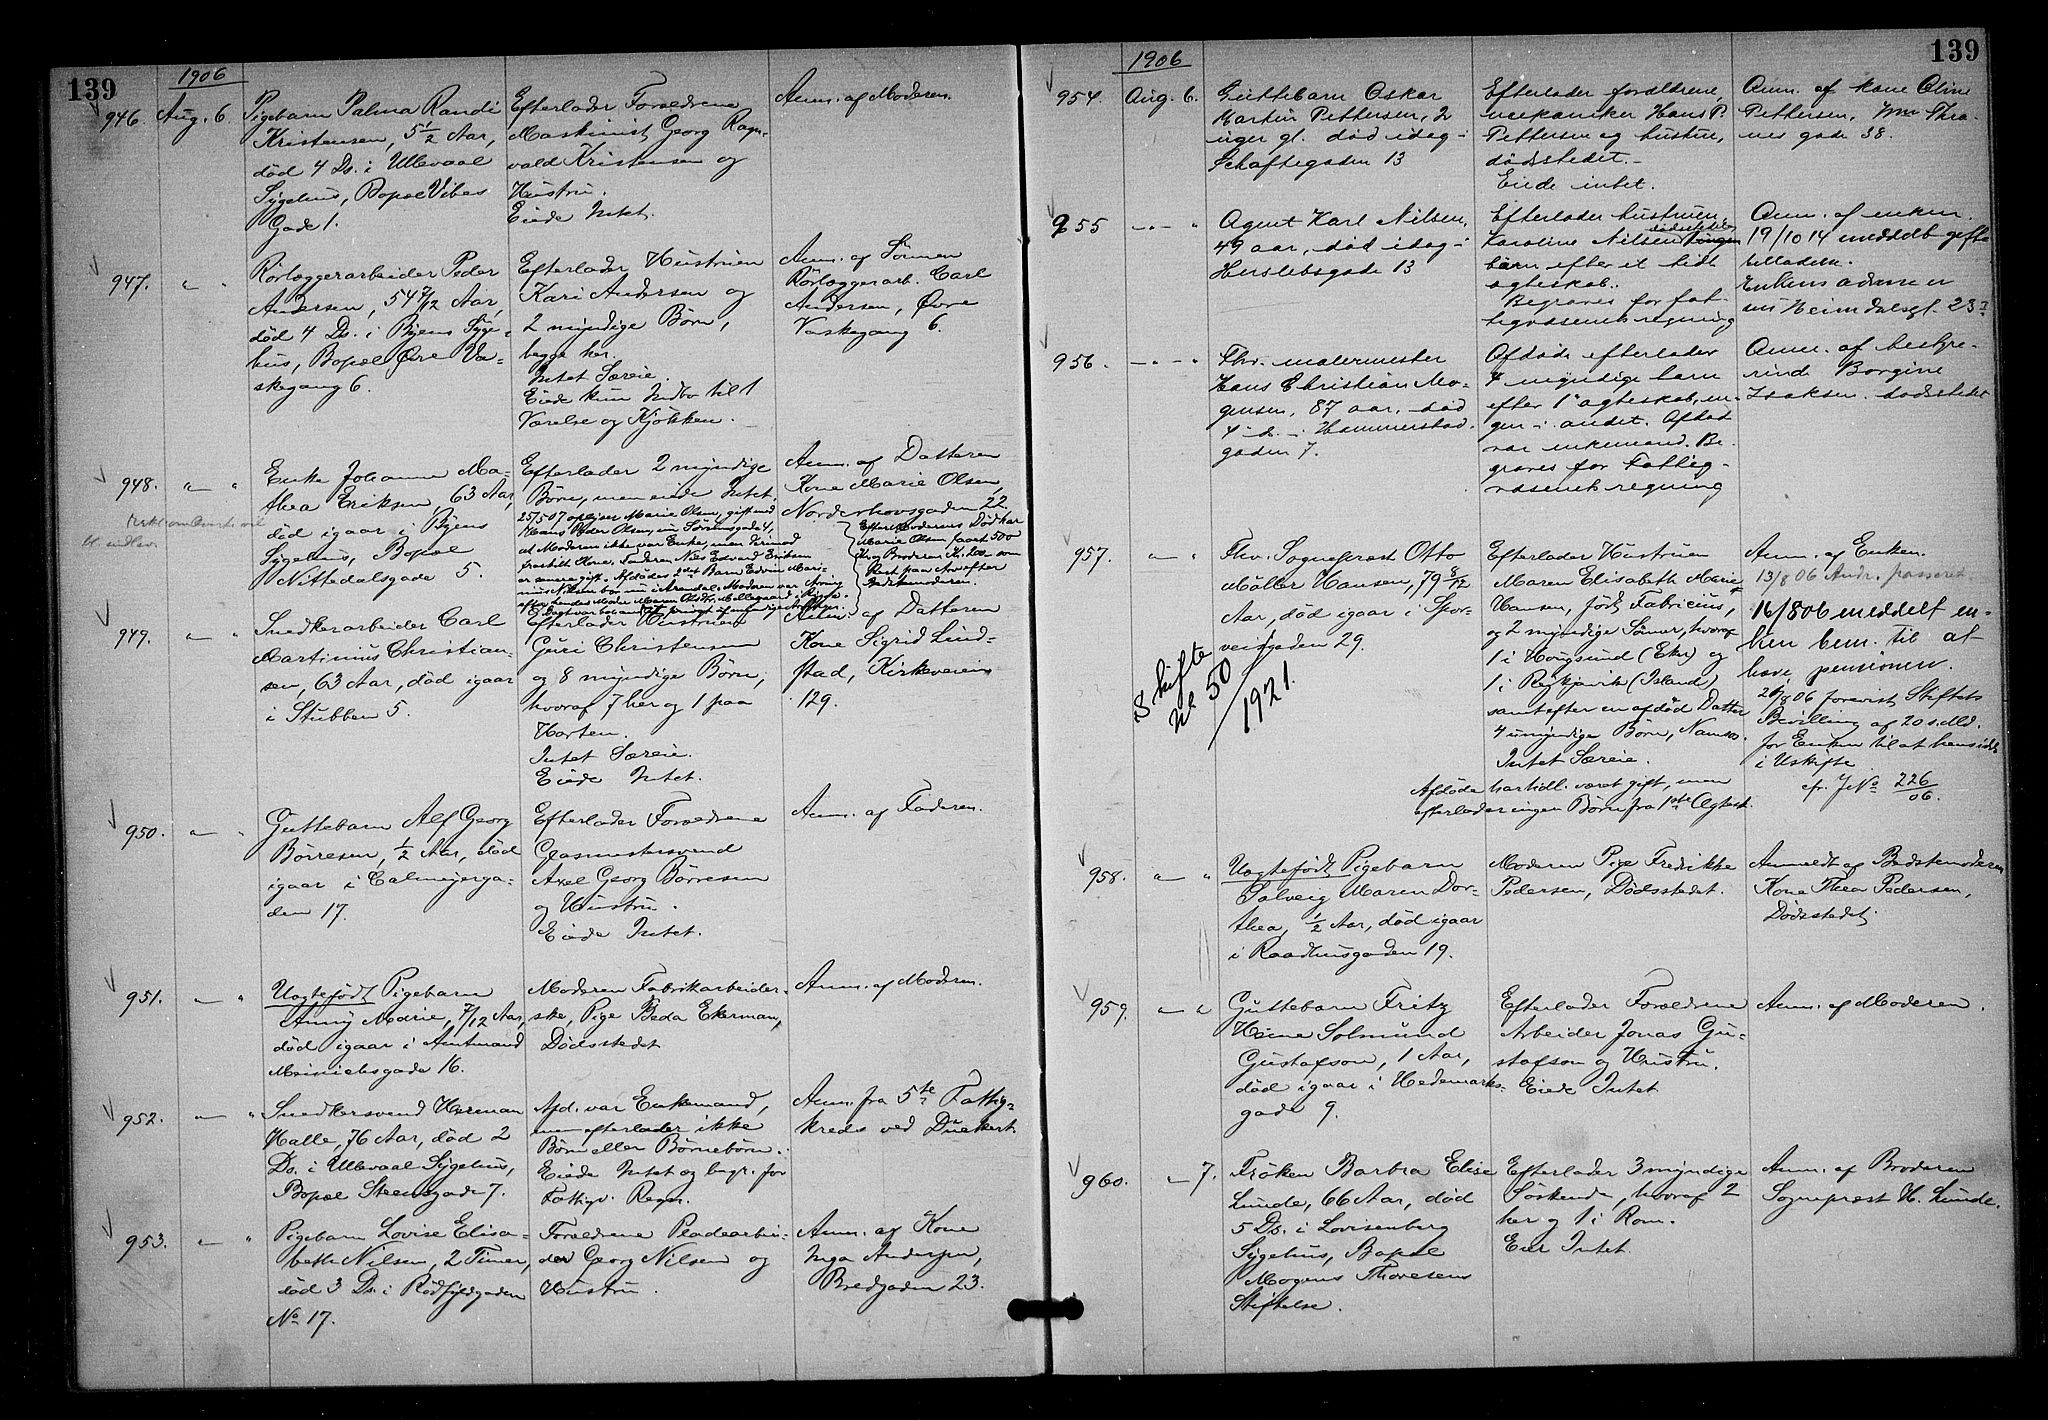 139
1906
946. Aug. 6.
Pigebarn Palma Randi
Kristensen, 5 1/2 Aar,
död 4 Ds. i Ullevaal
Sygehus, Bopæl Vibes
Gade 1.
Efterlader Forældrene
Maskinist Georg Ragn-
vald Kristensen og
Hustru.
Eiede Intet.
Anm. af Moderen.
947. " — "
Rörlæggerarbeider Peder
Andersen, 54 7/12 Aar,
död 4 Ds. i Byens Syge-
hus, Bopæl Övre Va-
skegang 6.
Efterlader Hustruen
Kari Andersen og
2 myndige Börn,
begge her.
Intet Særeie.
Eiede kun Indbo til 1
Værelse og Kjökken.
Anm. af Sönnen
Rörlæggerarb. Carl
Andersen, Övre
Vaskegang 6.
948. " — "
Enke Johanne Ma-
thea Eriksen 63 Aar,
död igaar i Byens
Sygehus, Bopæl
Nittedalsgade 5.
Efterlader 2 myndige
Börn, men eiede Intet.
25/5 07 oplyser Marie Olsen, gift med
Hans Peder Olsen, nu Sörlensgade 4,
at Moderen ikke var Enke, men
fraskilt Kone. Faderen Nils Edvard Eriksen
er senere gift. Afdödes 2det Barn Edvin Mari-
nius Nilsen bor nu i Arendal. Moderen var Arving
efter hendes Moder Maren
Anm. af Datteren
Kone Marie Olsen,
Norderhovsgaden 22.
Efter Moderens Död har
Marie Olsen faaet 500
Kr. og Broderen Kr. 200 som
Rest paa Arv efter
Bedstemoderen.
949. " — "
Snedkerarbeider Carl
Martinius Christian-
sen, 63 Aar, död igaar
i Stubben 5.
Efterlader Hustruen
Guri Christensen
og 8 myndige Börn,
hvoraf 7 her og 1 paa
Horten.
Intet Særeie.
Eiede Intet.
Anm. af Datteren
Kone Sigrid Lind-
stad, Kirkeveien
129.
950. " — "
Guttebarn Alf Georg
Börresen, 1/2 Aar, död
igaar i Calmeyerga-
den 17.
Efterlader Forældrene
Glasmestersvend
Axel Georg Börresen
og Hustru.
Eiede Intet.
Anm. af Faderen.
951. " — "
Uægtefödt Pigebarn
Anny Marie, 7/12 Aar,
död igaar i Amtmand
Meinichsgade 16.
Moderen Fabrikarbeider-
ske, Pige Beda Ekerman,
Dödsstedet
Anm. af Moderen.
952. " — "
Snedkersvend Herman
Halle, 76 Aar, död 2
Ds. i Ullevaal Sygehus,
Bopæl Steensgade 7.
Afd. var Enkemand,
men efterlader ikke
Börn eller Börnebörn.
Eiede Intet og begr. for
Fattigv. Regn.
Anm. fra 5te Fattig-
kreds ved Duckert.
953. " — "
Pigebarn Lovise Elisa-
beth Nilsen, 2 Timer,
död 3 Ds. i Rödfyldgaden
No 17.
Forældrene Pladearbei-
der Georg Nilsen og
Hustru.
Anm. af Kone
Inga Andersen,
Bredgaden 23.
139
1906
954. Aug. 6.
Guttebarn Oskar
Martin Pettersen, 2
uger gl. död idag i
Schaftegaden 13
Efterlader forældrene,
mekaniker Hans P.
Pettersen og hustru,
dödsstedet.
Eiede intet.
Anm. af kone Oline
Pettersen, Mrs Thra-
nes gade 38.
955 — " — "
Agent Karl Nilsen,
49 aar, död idag i
Herslebsgade 13
Efterlader hustruen
Karoline Nilsen, ingen
börn efter et tidl.
ægteskab.
Begraves for fat-
tigvæsenets regning
Anm. af enken.
19/10 14 meddelt gifte-
tilladelse.
Enkens adresse er
nu Heimdalsgt. 23 I
956. — " — "
Fhv. malermester
Hans Christian Mo-
gensen, 87 aar, död
4 ds. i Hammerstad-
gaden 7.
Afdöde efterlader
4 myndige barn
efter 1ste ægteskab, in-
gen i andet. Afdöde
var enkemand. Be-
graves for Fattig-
væsenets regning
Anm. af besty-
rinde Borgine
Isaksen. dödsstedet
957. " — "
Fhv. Sogneprest Otto
Möller Hansen, 79 8/12
Aar, död igaar i Spor-
veisgaden 29.
Skifte
No 50/1921.
Efterlader Hustruen
Maren Elisabeth Marie
Hansen, född Fabricius,
og 2 myndige Sönner, hvoraf
1 i Hougsund (Eker) og
1 i Reykjavik (Island)
samt efter en afdöd Datter
4 umyndige Börn, Namsos.
Intet Særeie.
Afdöde har tidl. været gift, men
efterlader ingen Börn fra 1ste Ægtesk.
Anm. af Enken.
13/8 06 Andr. passeret.
16/8 06 meddelt en-
ken bem. til at
hæve pensionen.
28/8 06 forevist Stiftets
Bevilling af 20 s. Md.
for Enken til at hensidde
i Uskifte
cfr. J No 226/06.
958. " — "
Uægtefödt Pigebarn
Solveig Maren Dor-
thea, 1/2 Aar, död igaar
i Raadhusgaden 19.
Moderen Pige Fredrikke
Pedersen, Dödsstedet.
Anmeldt af Bedstemoderen
Kone Thea Pedersen,
Dödsstedet.
959. " — "
Guttebarn Fritz
Heine Solmund
Gustafson, 1 Aar,
död igaar i Hedemarks-
gade 9.
Efterlader Forældrene
Arbeider Jonas Gu-
stafson og Hustru.
Eiede Intet
Anm. af Moderen.
960. " — 7.
Fröken Barbra Elise
Lunde, 66 Aar, död
5 Ds. i Lovisenberg
Sygehus, Bopæl
Mogens Thoresens
Stiftelse.
Efterlader 3 myndige
Söskende, hvoraf 2
her og 1 i Rom.
Eier Intet.
Anm. af Broderen
Sogneprest H. Lunde.